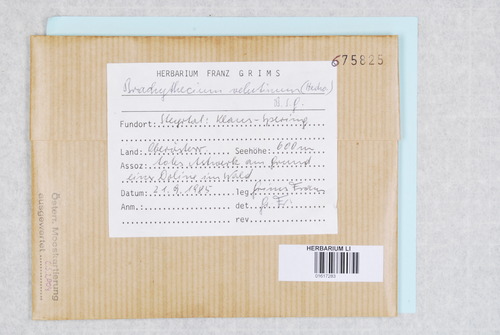 675825
HERBARIUM FRANZ GRIMS
Brachythecium velutinum (Hedw.)
B.S.G.
Fundort: Steyrtal: Klaus-Spering
Land: Oberösterr. Seehöhe: 600m
Assoz. totes Astwerk am Grund
einer Doline im Wald
Datum: 21.9.1985 leg. Grims Franz
Anm.: det.
rev.
Österr. Mooskartierung
ausgewertet
HERBARIUM LI
01617283